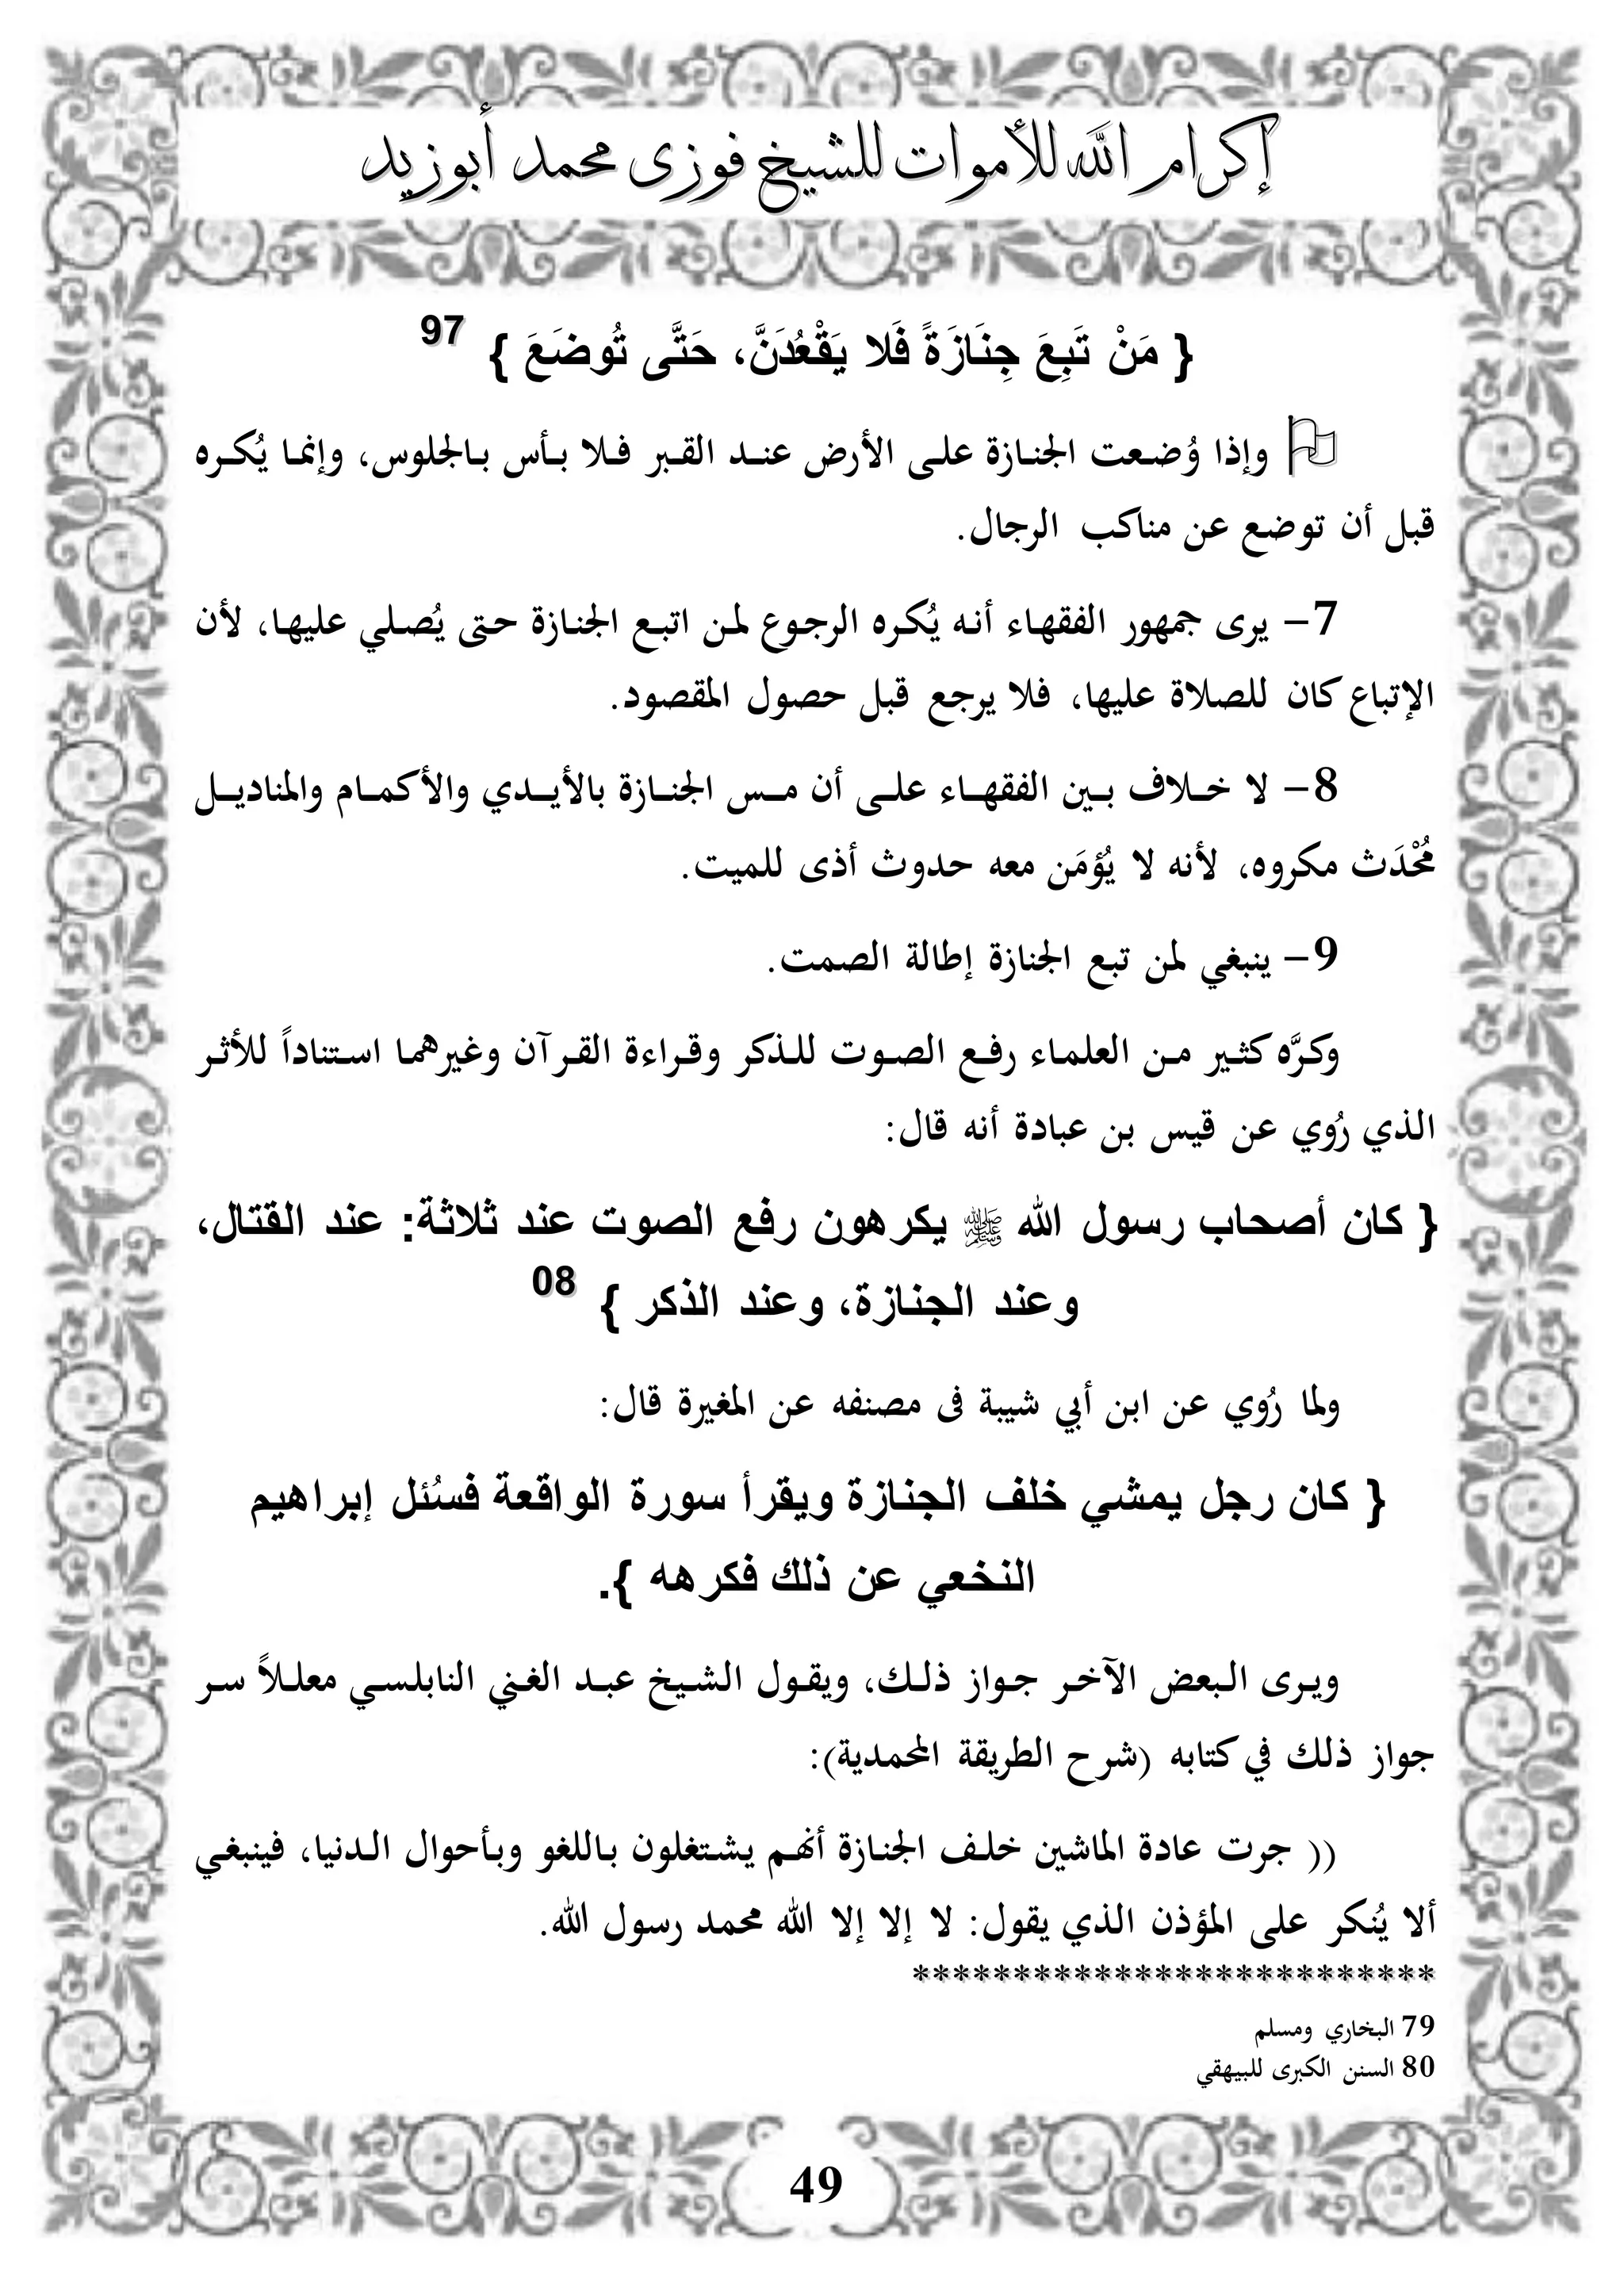 إكرام الله للأموات للشيخ فوزى محمد أبوزيد
{ مَنْ تَبِعَ جِنَازَةً فَلا يَقْعُدَنَّ، حَتَّى تُوضَعَ } 97
وإذا وُضعت الجنازة على الأرض عند القبر فلا بأس بالجلوس، وإنما يُكره
قبل أن توضع عن مناكب الرجال.
7- يرى جمهور الفقهاء أنه يُكره الرجوع لمن اتبع الجنازة حتى يُصلي عليها، لأن
الإتباع كان للصلاة عليها، فلا يرجع قبل حصول المقصود.
8- لا خلاف بين الفقهاء على أن مس الجنازة بالأيدي والأكمام والمناديل
مُحْدَث مكروه، لأنه لا يُؤمَن معه حدوث أذى للميت.
9- ينبغي لمن تبع الجنازة إطالة الصمت.
وكرَّه كثير من العلماء رفع الصوت للذكر وقراءة القرآن وغيرهما استناداً للأثر
الذي رُوي عن قيس بن عبادة أنه قال:
{ كان أصحاب رسول الله ﷺ يكرهون رفع الصوت عند ثلاثة: عند القتال،
وعند الجنازة، وعند الذكر } 08
ولما رُوي عن ابن أبي شيبة فى مصنفه عن المغيرة قال:
{ كان رجل يمشي خلف الجنازة ويقرأ سورة الواقعة فسُئل إبراهيم
النخعي عن ذلك فكرهه }.
ويرى البعض الآخر جواز ذلك، ويقول الشيخ عبد الغني النابلسي معللاً سر
جواز ذلك في كتابه (شرح الطريقة المحمدية):
(( جرت عادة الماشين خلف الجنازة أنهم يشتغلون باللغو وبأحوال الدنيا، فينبغي
ألا يُنكر على المؤذن الذي يقول: لا إلا إلا الله محمد رسول الله.
**************************
79 البخاري ومسلم
80 السنن الكبرى للبيهقي
49